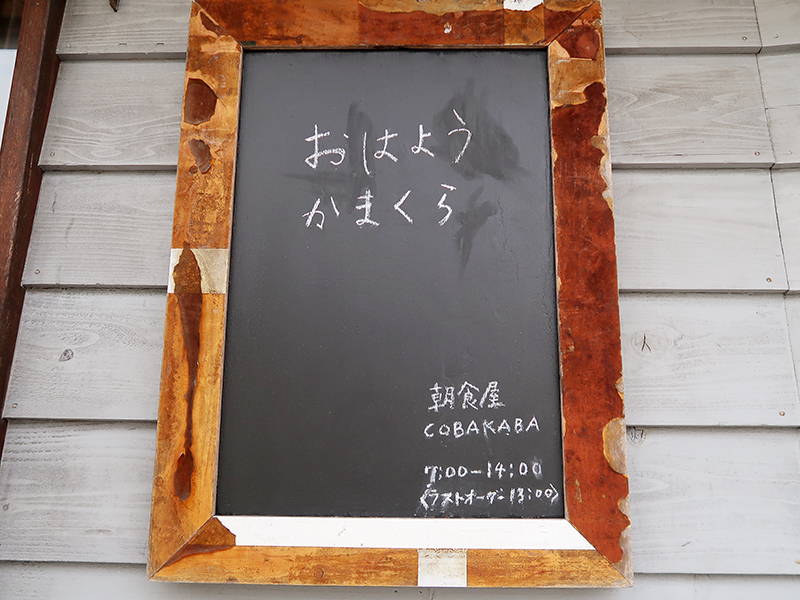 おはよう
かまくら
朝食屋
COBAKABA
7:00-14:00
(ラストオーダー13:00)